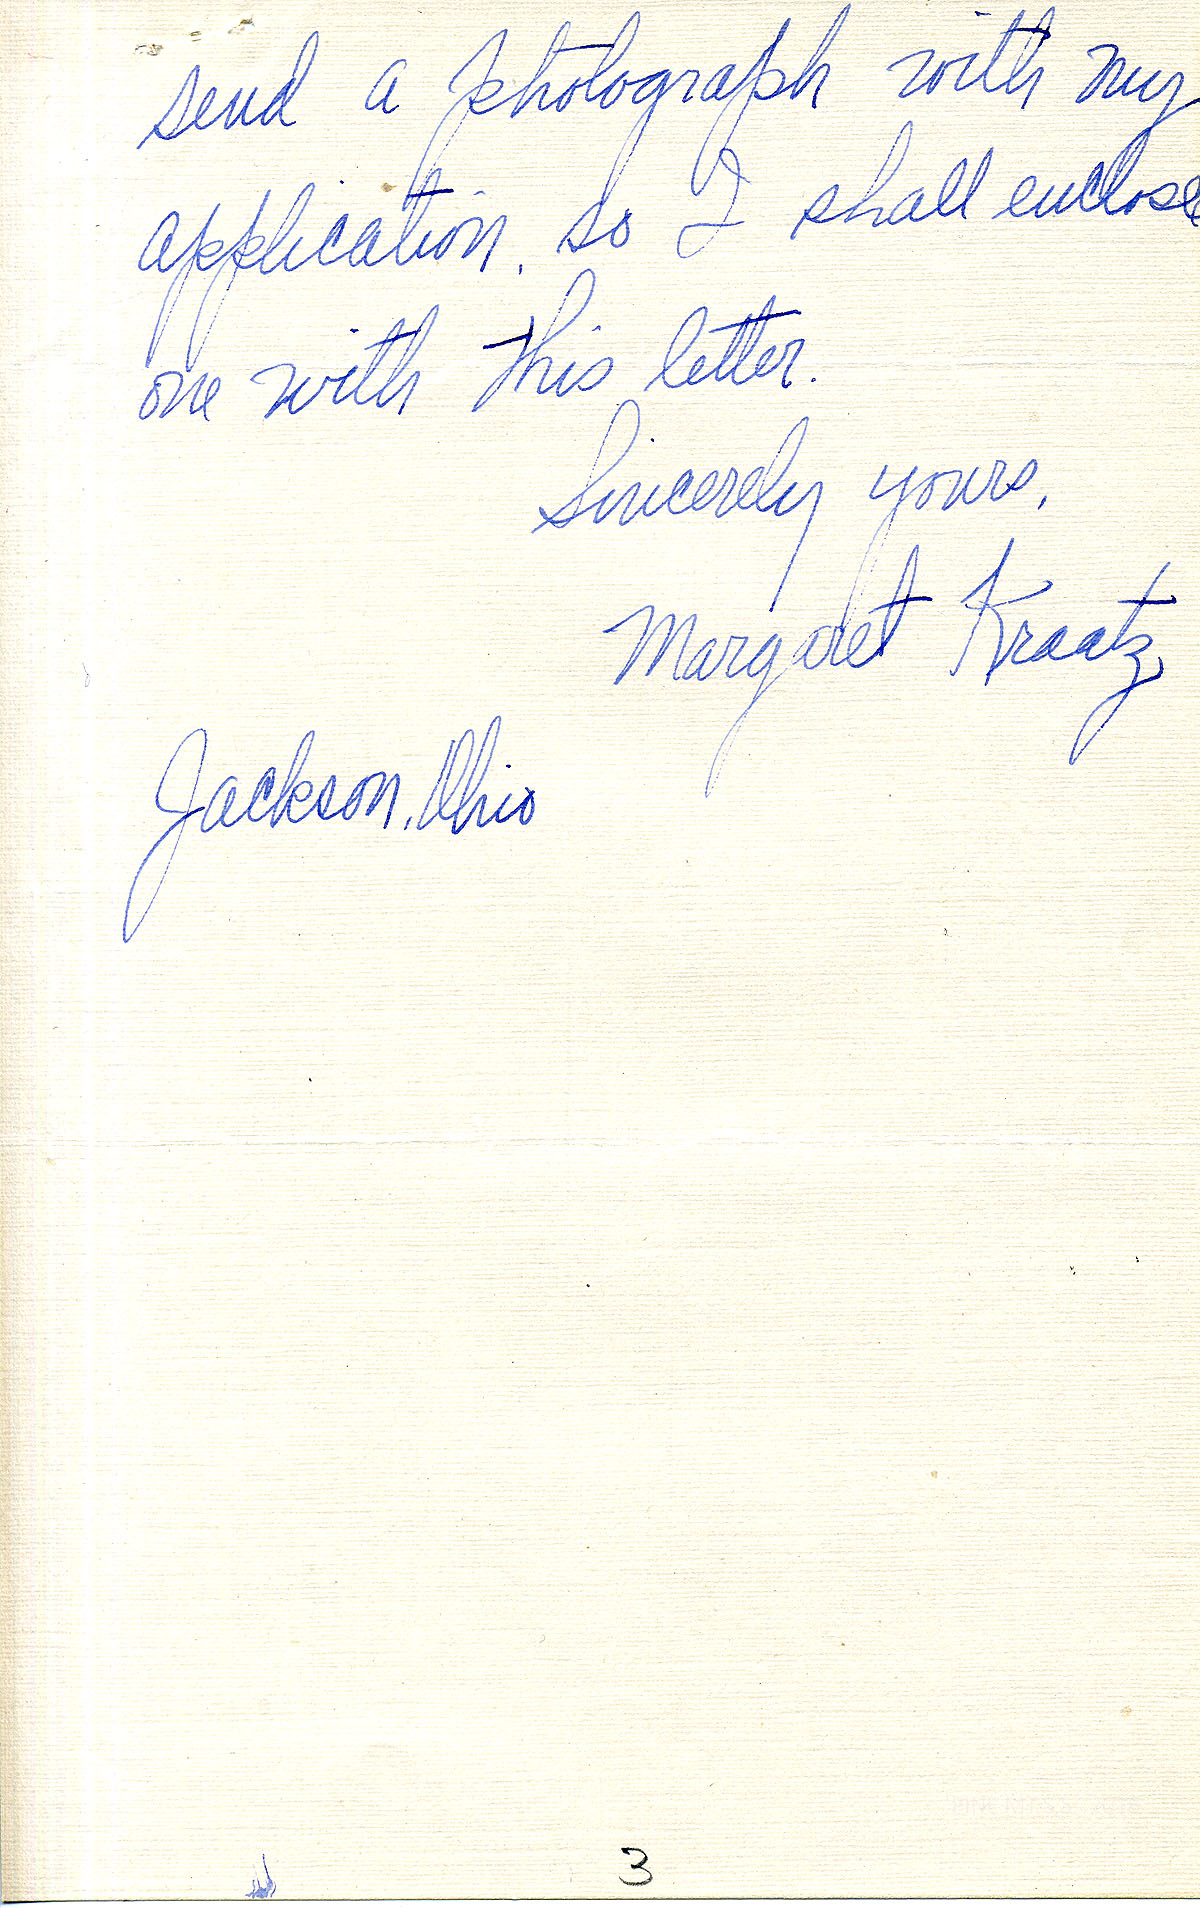 send a photograph with my
application, so I shall enclose
one with this letter.
Sincerely yours,
Margaret Kraatz
Jackson, Ohio
3